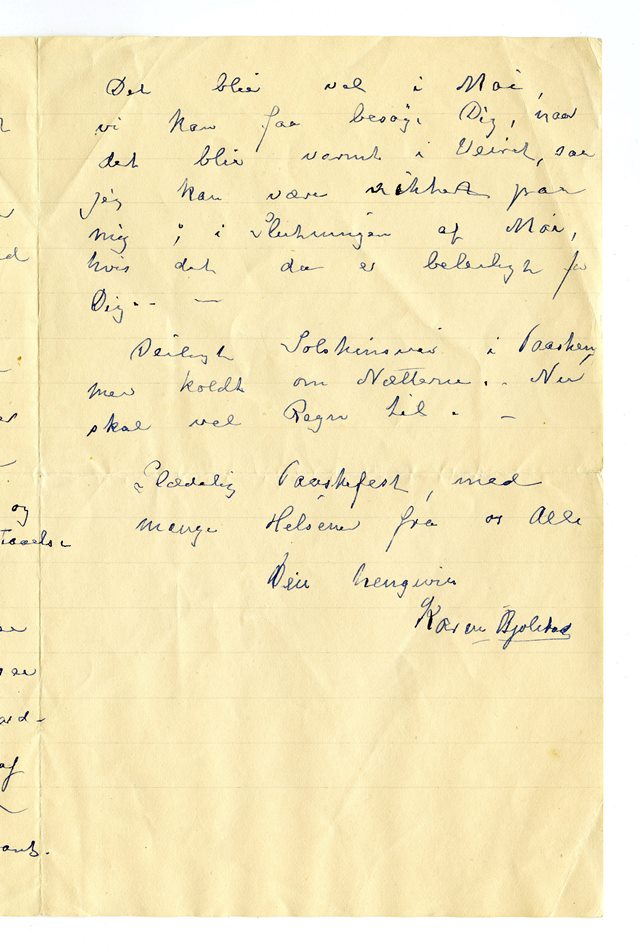 Det blir vel i Mai,
vi kan faa besøge Dig, naar
det blir varmt i Veiret, saa
jeg kan være sikker paa
mig, i Slutningen af Mai,
hvis det da er beleiligt for
Dig. . —
Deiligt Solskinsveir i Paasken,
men koldt om Nætterne. . Nu
skal vel Regn til. —
Glædelig Paaskefest, med
mange Helsener fra os Alle
Din hengivne
Karen Bjølstad
og
af